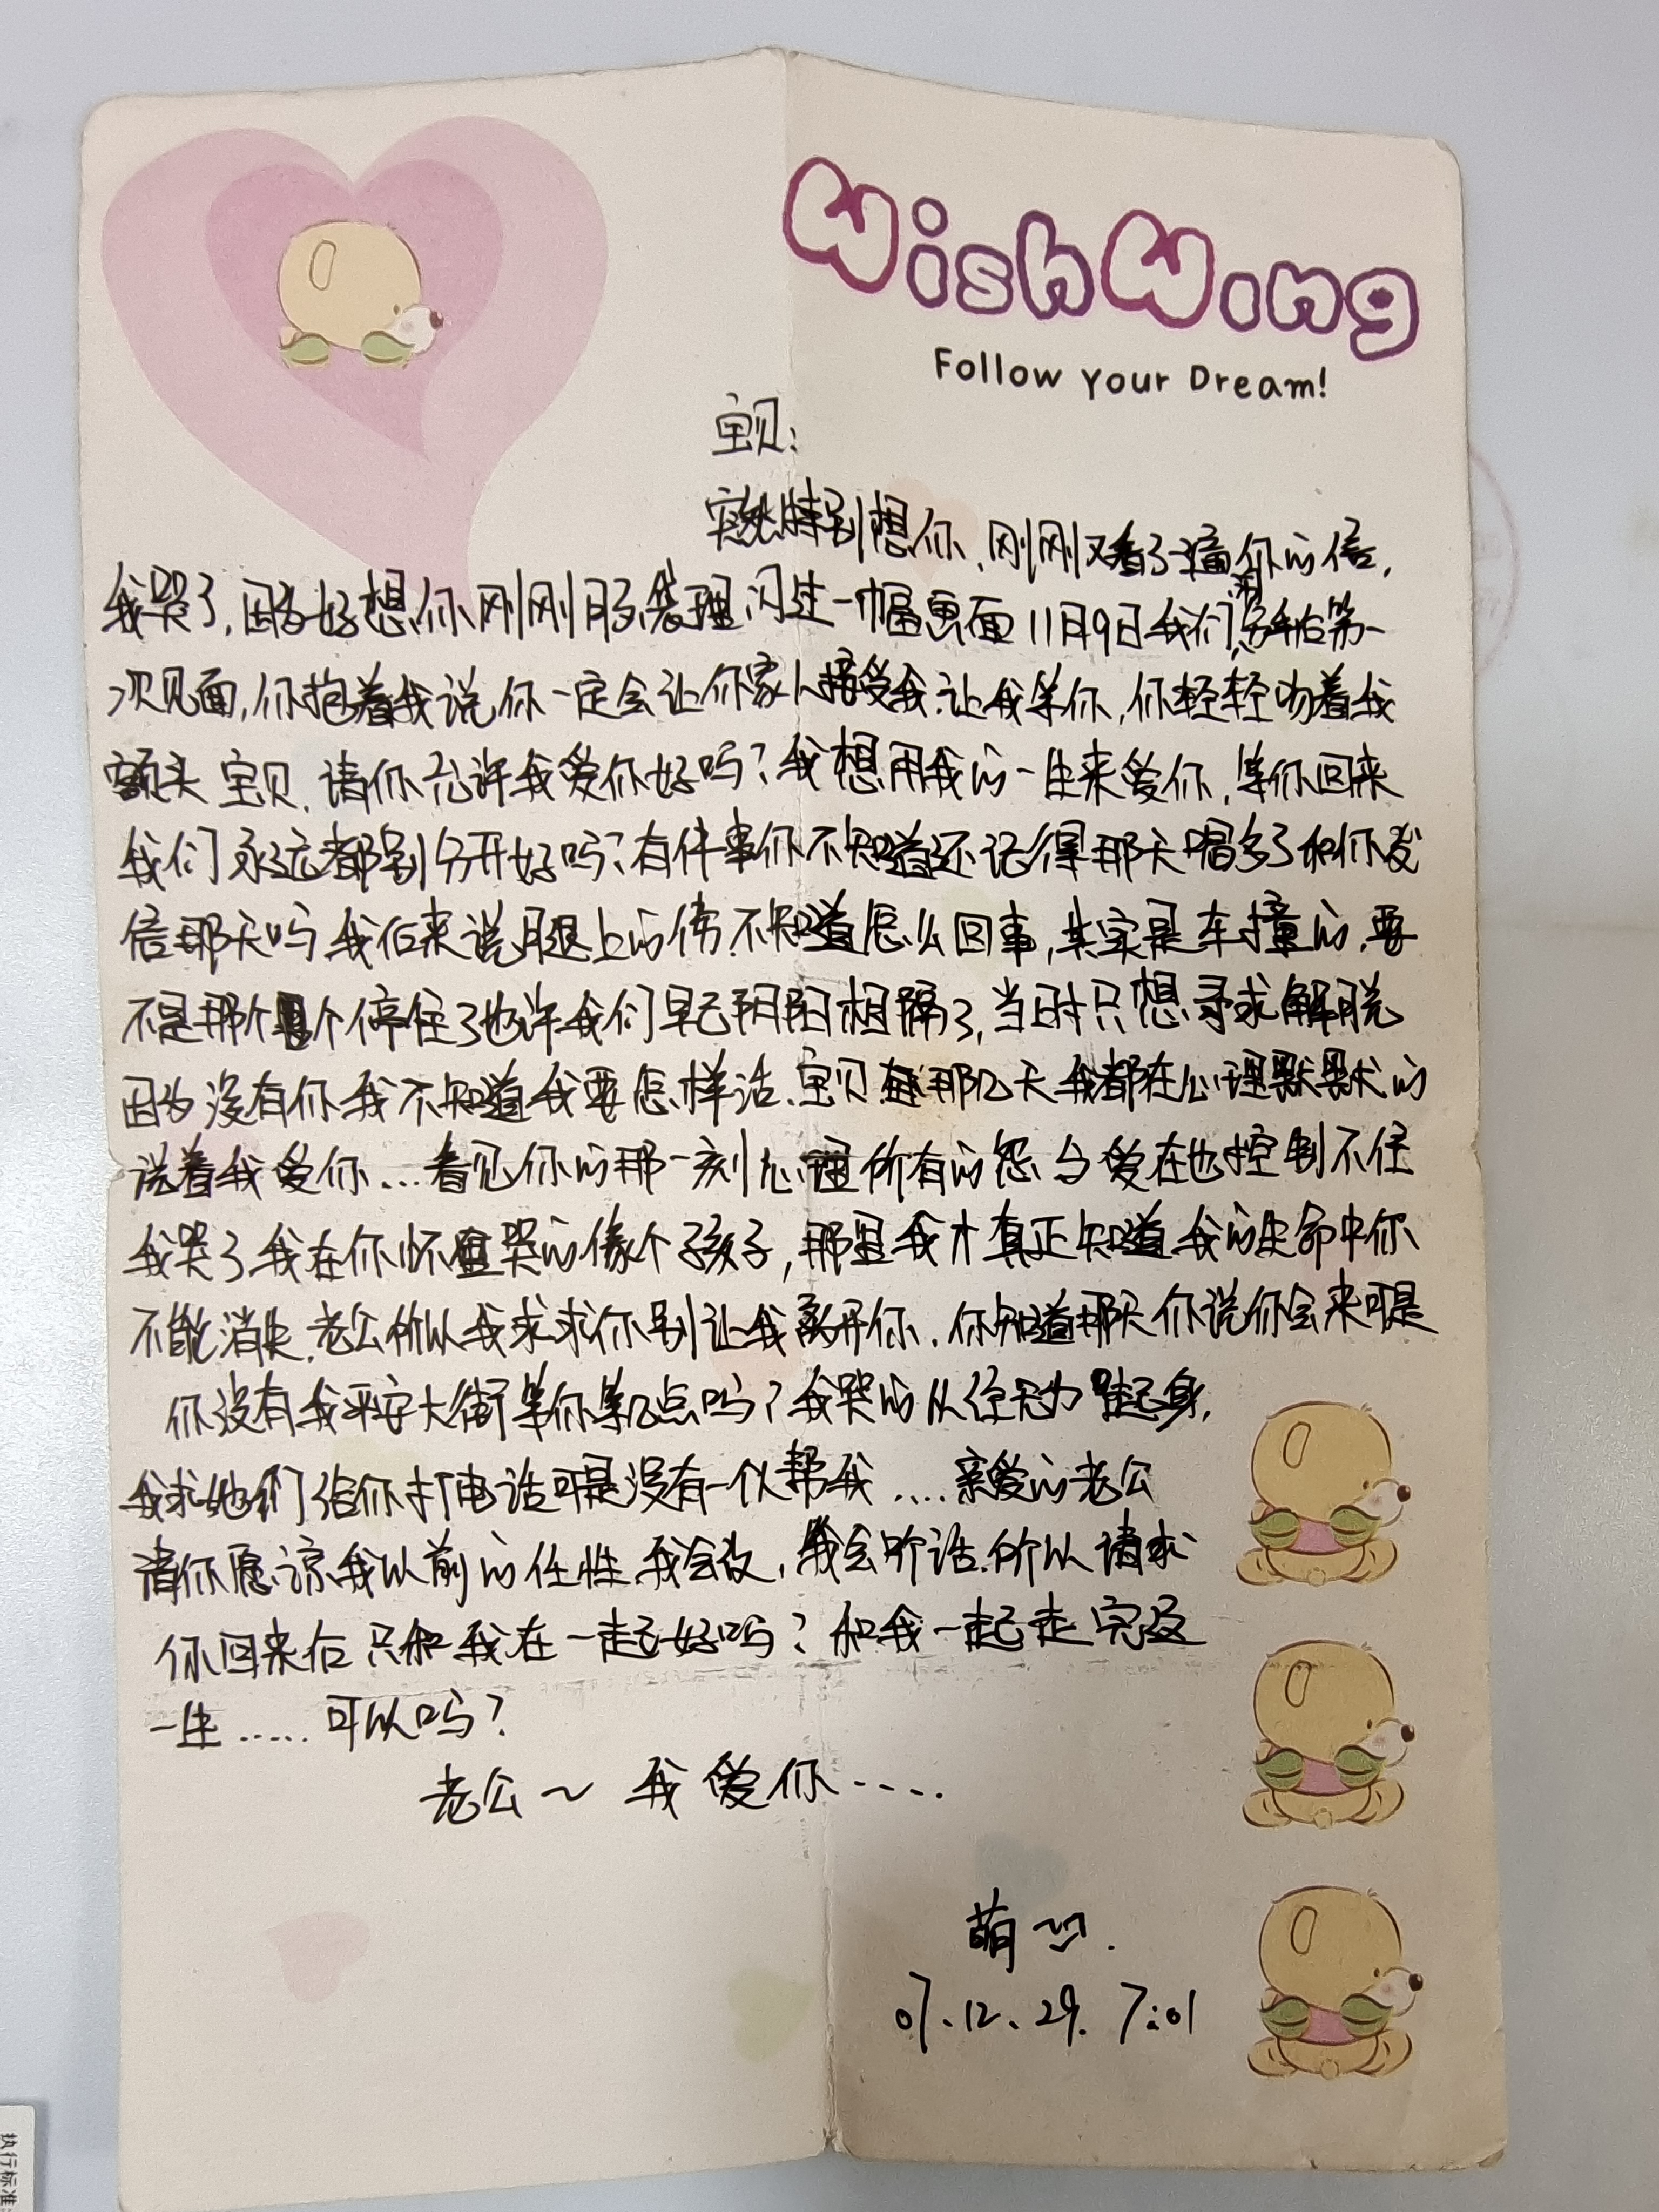 WishWing
Follow Your Dream!
宝贝:
突然特别想你、刚刚又看了一遍你的信,
我哭了,因为好想你刚刚脑袋理闪过一幅画面11月9日我们分手后第一
次见面,你抱着我说你一定会让你家人接受我.让我等你,你轻轻吻着我
额头 宝贝.请你允许我爱你好吗?我想用我的一生来爱你,等你回来
我们永远都别分开好吗?有件事你不知道还记得那天喝多了和你发
信那天吗.我后来说腿上的伤.不知道怎么回事,其实是车撞的.要
不是那个个停住了也许我们早已阴阳相隔了,当时只想寻求解脱
因为没有你我不知道我要怎样活.宝贝.那几天我都在心理默默的
说着我爱你...看见你的那一刻心理所有的怨与爱在也控制不住
我哭了.我在你怀里哭的像个孩子,那里我才真正知道.我的生命中你
不能消失.老公所以我求求你别让我离开你.你知道那天你说你会来可是
你没有我平安大街等你等几点吗?我哭的从经无力起身,
我求她们给你打电话可是没有一似帮我....亲爱的老公
请你愿谅我以前的任性.我会改,我会听话.所以请求
你回来后只和我在一起好吗?和我一起走完这
一生.....可以吗?
老公~ 我爱你....
萌
07.12.29. 7:01
执行标准: